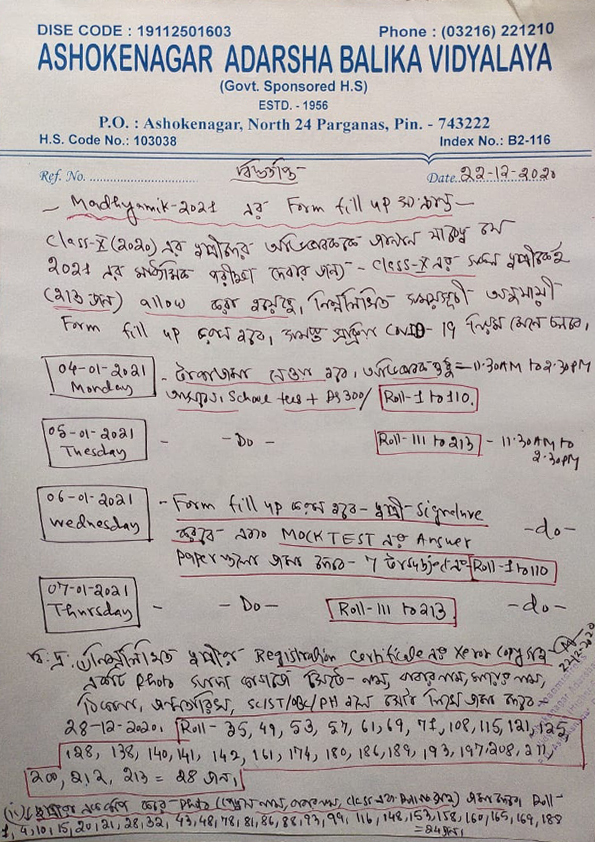 DISE CODE : 19112501603 Phone : (03216) 221210
ASHOKENAGAR ADARSHA BALIKA VIDYALAYA
(Govt. Sponsored H.S)
ESTD. - 1956
P.O. : Ashokenagar, North 24 Parganas, Pin. - 743222
H.S. Code No.: 103038 Index No.: B2-116
Ref. No. বিজ্ঞপ্তি Date. 22-12-2020
- Madhyamik-2021 এর Form fill up সংক্রান্ত -
Class-X (2020) এর ছাত্রীদের অভিভাবকদের জানানো যাচ্ছে যে
2021 এর মাধ্যমিক পরীক্ষা দেবার জন্য - Class-X এর সকল ছাত্রীকেই
allow করা হয়েছে, নিম্নলিখিত সময়সূচী অনুযায়ী
Form fill up করতে হবে, সমস্ত Covid-19 নিয়ম মেনে চলবে,
04-01-2021 Monday - টাকা জমা নেওয়া হবে, অভিভাবক = 11.30AM to 2.30PM
School fees + Rs 300/ Roll-1 to 110.
05-01-2021 Tuesday - - Do - Roll-111 to 213 - 11.30AM to 2.30PM
06-01-2021 Wednesday - Form fill up করতে হবে - ছাত্রী Signature
করবে - এবং MOCK TEST এর Answer - do -
Paper জমা দেবে - 7 টা Subject এর Roll-1 to 110
07-01-2021 Thursday - - Do - Roll-111 to 213 - do -
বি.দ্র. নিম্নলিখিত ছাত্রীরা Registration Certificate এর Xerox Copy
একটি Photo নাম, বাবার নাম, মায়ের নাম, 22-12-2020
ঠিকানা, SC/ST/OBC/PH লিখে জমা দেবে
28-12-2020. Roll - 35, 49, 53, 57, 61, 69, 71, 108, 115, 121, 125,
128, 138, 140, 141, 142, 161, 174, 180, 186, 189, 193, 197, 208, 211
200, 212, 213 = 28 জন,
(ii) Photo Class এবং জমা দেবে, Roll-
1, 4, 10, 15, 20, 21, 28, 32, 43, 48, 78, 81, 86, 88, 93, 99, 116, 148, 153, 158, 160, 165, 169, 188
= 24 জন,